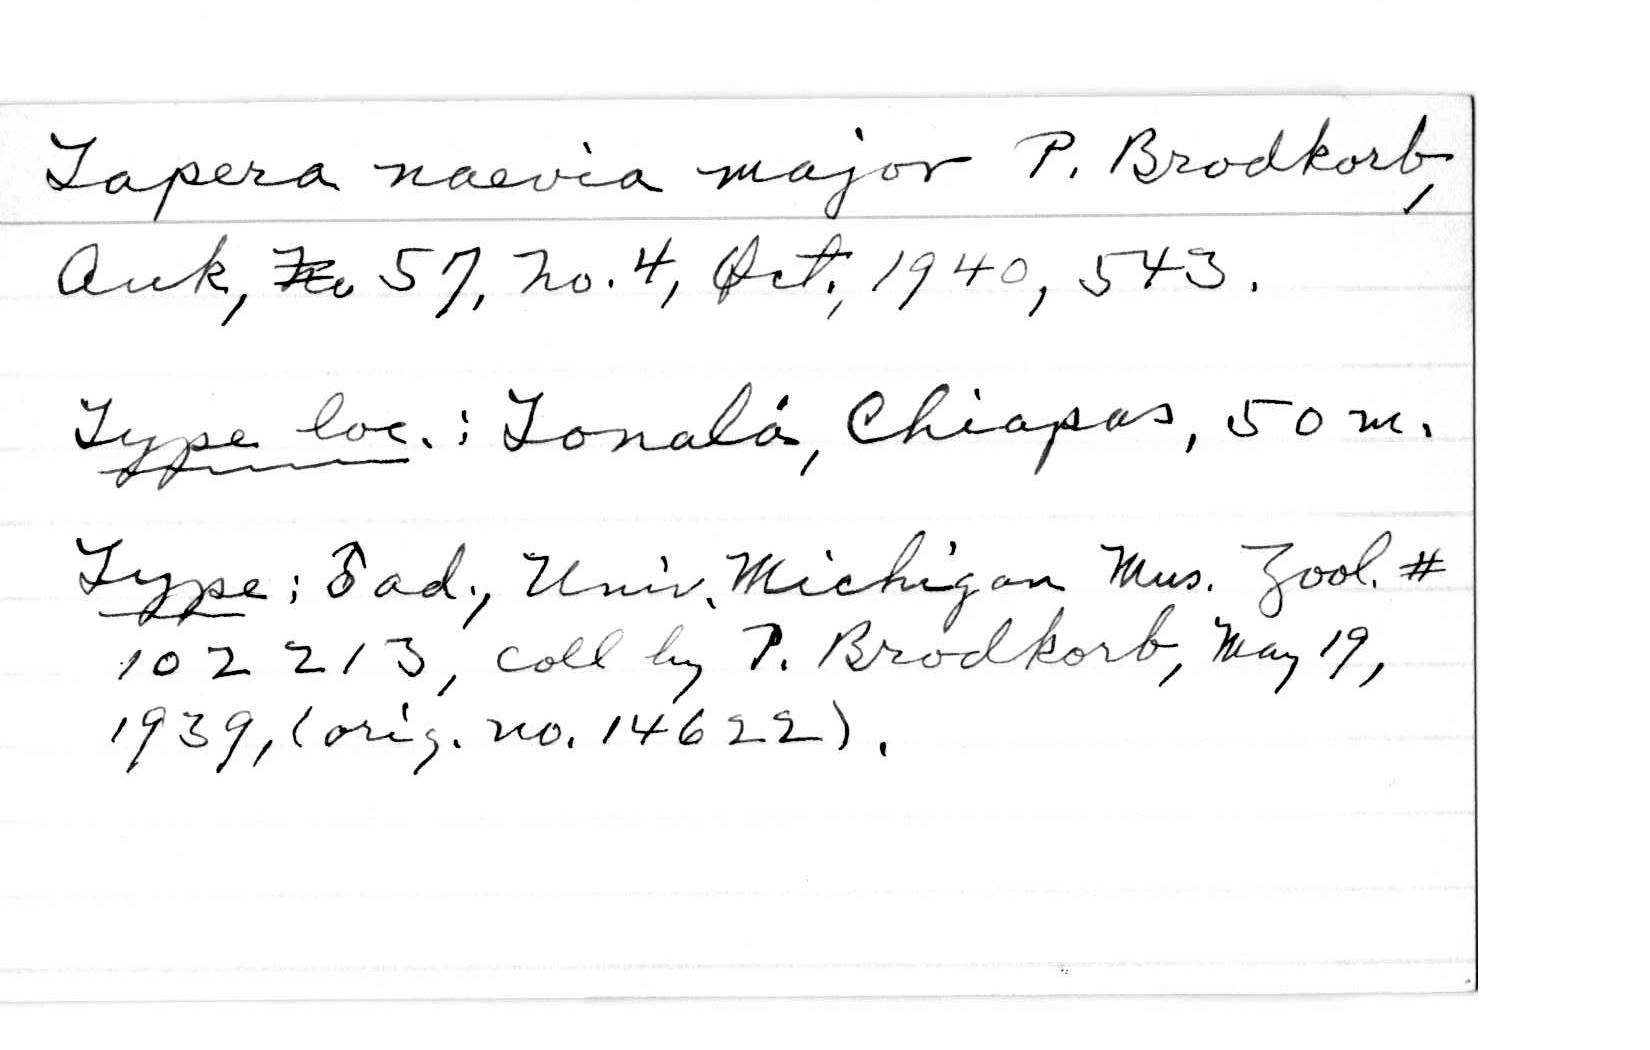 Tapera naevia major P. Brodkorb,
Auk, 57, no. 4, Oct., 1940, 543.
Type loc.: Tonalá, Chiapas, 50 m.
Type: ♂ ad., Univ. Michigan Mus. Zool. #
102213, coll by P. Brodkorb, May 19,
1939, (orig. no. 14622).